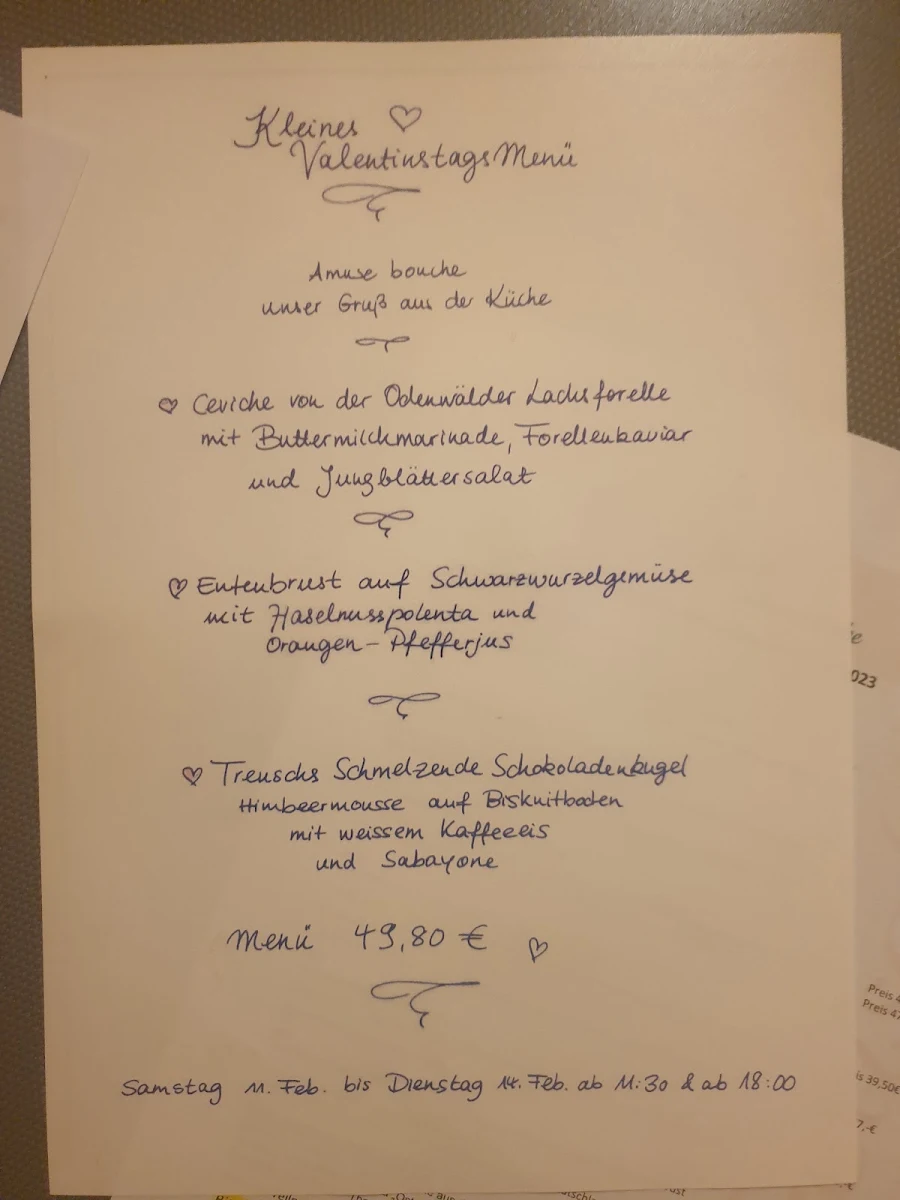 Kleines
ValentinstagsMenü
Amuse bouche
unser Gruß aus der Küche
Ceviche von der Odenwälder Lachsforelle
mit Buttermilchmarinade, Forellenkaviar
und Jungblättersalat
Entenbrust auf Schwarzwurzelgemüse
mit Haselnusspolenta und
Orangen-Pfefferjus
Treuschs Schmelzende Schokoladenkugel
Himbeermousse auf Biskuitboden
mit weissem Kaffeeeis
und Sabayone
Menü 49,80 €
Samstag 11. Feb. bis Dienstag 14. Feb. ab 11:30 & ab 18:00
023
Preis 4
Preis 47
is 39,50€
7,-€